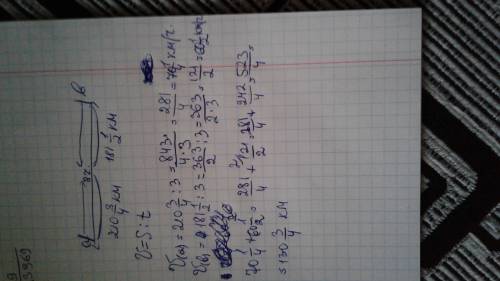 9
3969
a 3ч b
210 3/4 км 181 1/2 км
V=S:t
V(a) = 210 3/4 : 3 = 843/4·3 = 281/4 = 70 1/4 км/ч.
V(b) = 181 1/2 : 3 = 363/2 : 3 = 363/2·3 = 121/2 = 60 1/2 км/ч
70 1/4 + 60 1/2 = 281/4 + 121/2 = 281/4 + 242/4 = 523/4 =
= 130 3/4 км